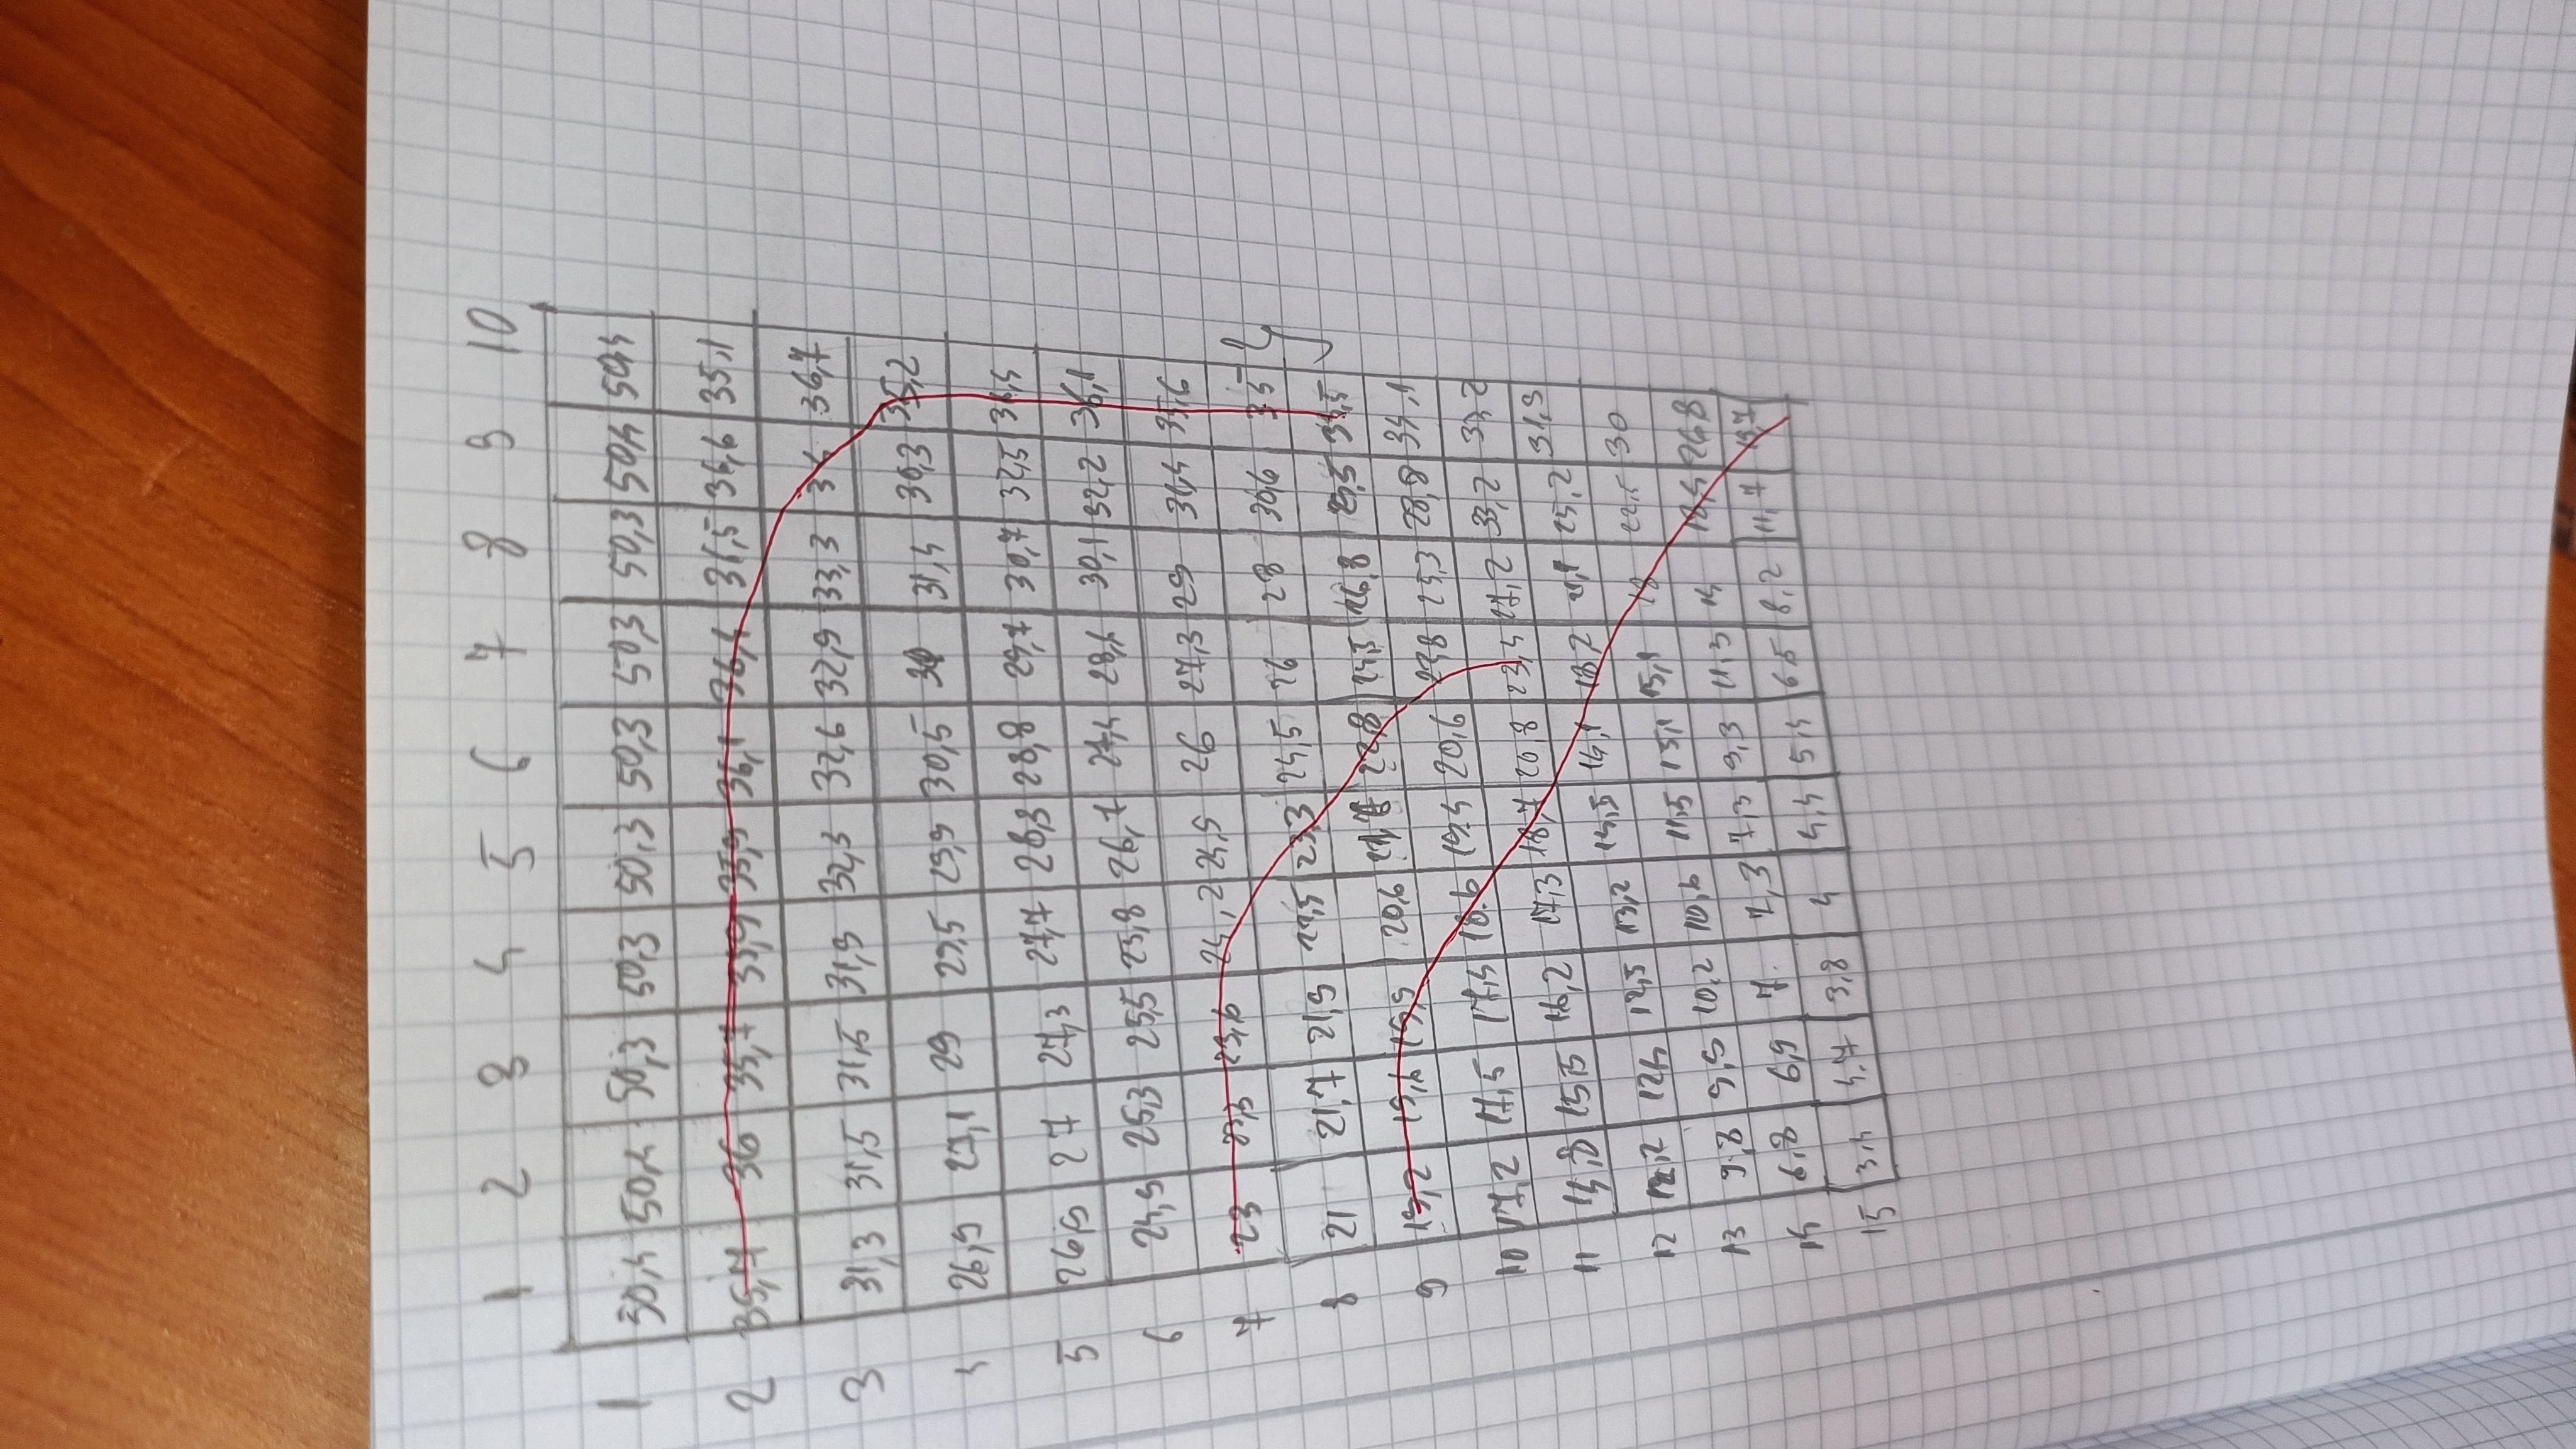 1 2 3 4 5 6 7 8 9 10
1 50,4 50,4 50,3 50,3 50,3 50,3 50,3 50,3 50,4 50,4
2 35,7 36 35,7 35,9 35,9 36,1 36,1 31,5 34,6 35,1
3 31,3 31,5 31,5 31,9 32,3 32,6 32,9 33,3 34 36,7
4 26,9 27,1 29 29,5 29,9 30,5 30 31,4 30,3 35,2
5 26,9 27 27,3 27,7 28,3 28,8 29,7 30,7 32,5 34,4
6 24,9 25,3 25,5 25,8 26,7 27,4 28,4 30,1 32,2 36,1
7 23 23,3 23,6 24,2 24,9 26 27,3 29 31,4 35,6
8 21 21,7 21,9 22,5 23,3 24,5 26 28 30,6 35
9 19,2 19,6 19,9 20,6 22,8 24,5 26,8 29,5 34,5
10 17,2 17,5 17,4 18,6 19,4 20,6 23,8 25,3 28,8 34,1
11 14,8 15,5 16,2 17,3 18,7 20,8 23,4 27,2 33,2 33,2
12 12,2 12,4 12,5 13,2 14,5 16,1 18,2 21,1 25,2 31,9
13 9,8 9,5 10,2 10,6 11,5 13,1 15,1 18 22,5 30
14 6,8 6,9 7 7,3 7,3 9,3 11,3 14 18,4 26,8
15 3,4 4,7 3,8 4 4,4 5,4 6,5 8,2 11,7 19,7
y